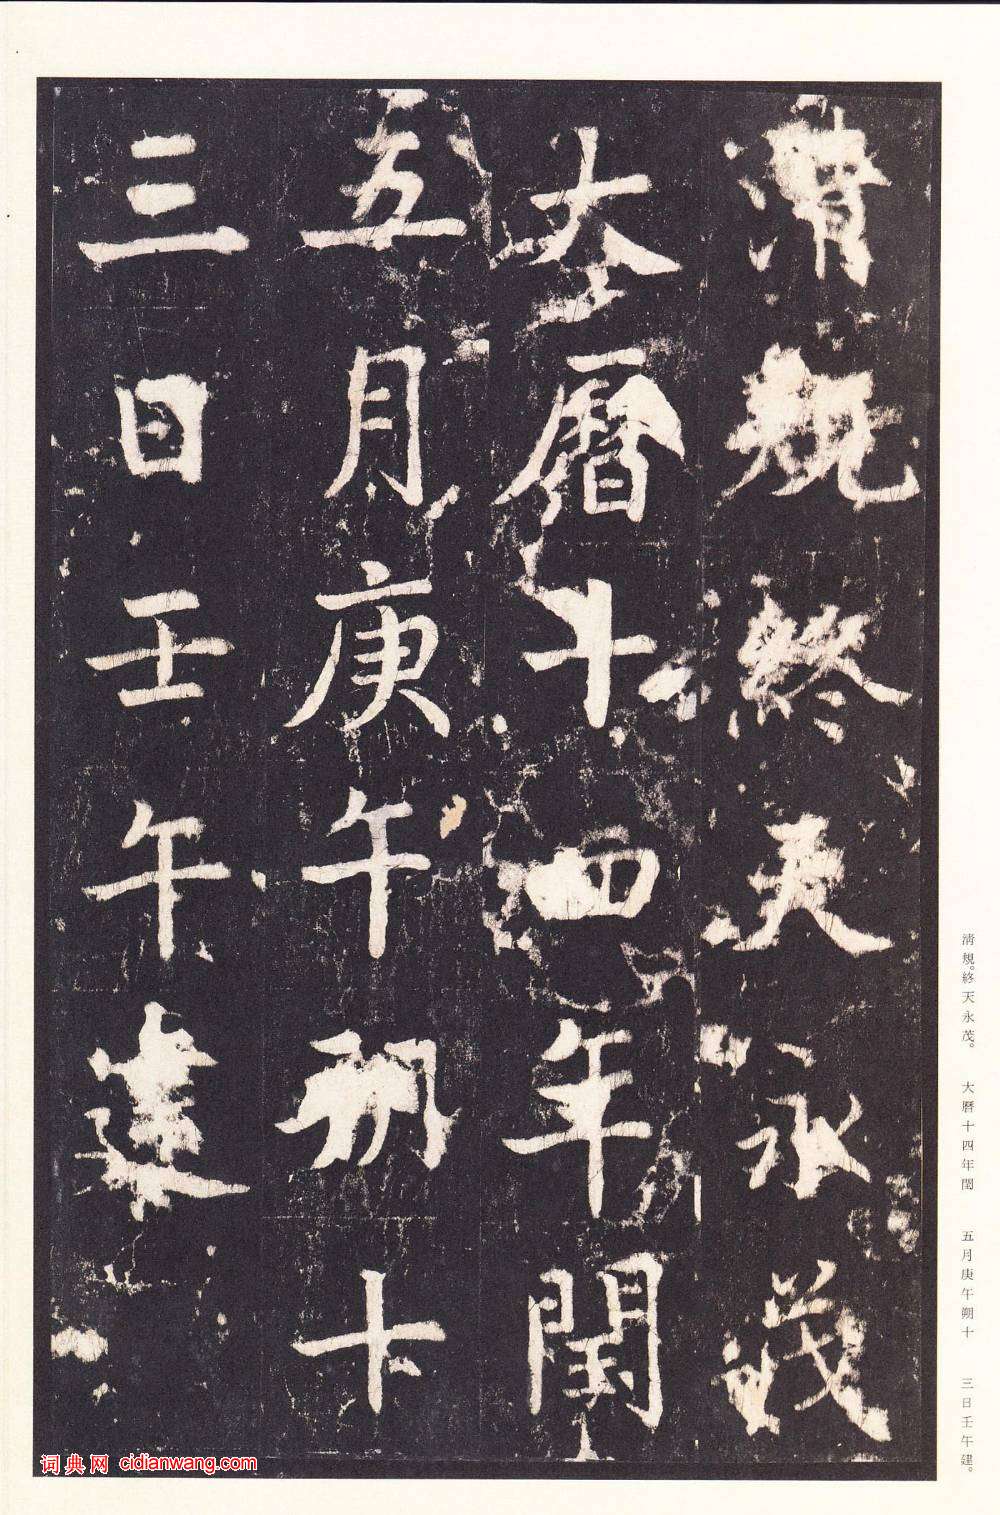 清規終天永茂
大曆十四年閏
五月庚午朔十
三日壬午建
清規。終天永茂。　大曆十四年閏　五月庚午朔十　三日壬午建。
词典网 cidianwang.com